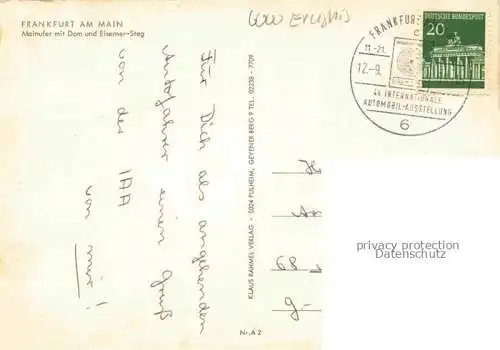 FRANKFURT AM MAIN
Mainufer mit Dom und Eiserner-Steg
Für Dich als angehenden
Autofahrer einen Gruß
von der IAA
von mir!
KLAUS RAMMEL VERLAG - 5024 PULHEIM, GEYENER BERG P TEL. 02238 - 7709
Nr. A 2
FRANKFURT
11.-21.
12.-9.
44. INTERNATIONALE
AUTOMOBIL-AUSSTELLUNG
6
DEUTSCHE BUNDESPOST
20
68
privacy protection
Datenschutz